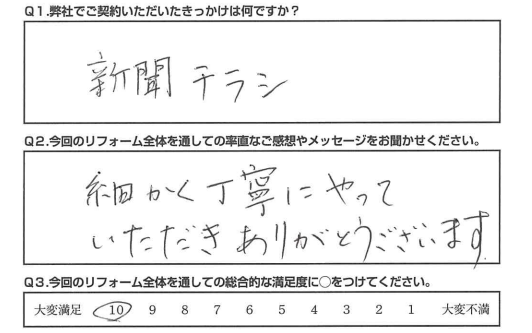 Q1.弊社でご契約いただいたきっかけは何ですか？
新聞チラシ
Q2.今回のリフォーム全体を通しての率直なご感想やメッセージをお聞かせください。
細かく丁寧にやって
いただきありがとうございます
Q3.今回のリフォーム全体を通しての総合的な満足度に○をつけてください。
大変満足 10 9 8 7 6 5 4 3 2 1 大変不満